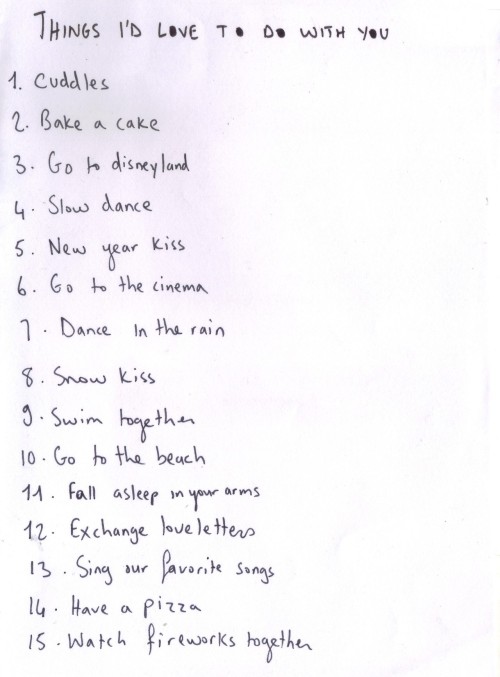 THINGS I'D LOVE TO DO WITH YOU
1. Cuddles
2. Bake a cake
3. Go to disneyland
4. Slow dance
5. New year kiss
6. Go to the cinema
7. Dance in the rain
8. Snow kiss
9. Swim together
10. Go to the beach
11. Fall asleep in your arms
12. Exchange loveletters
13. Sing our favorite songs
14. Have a pizza
15. Watch fireworks together